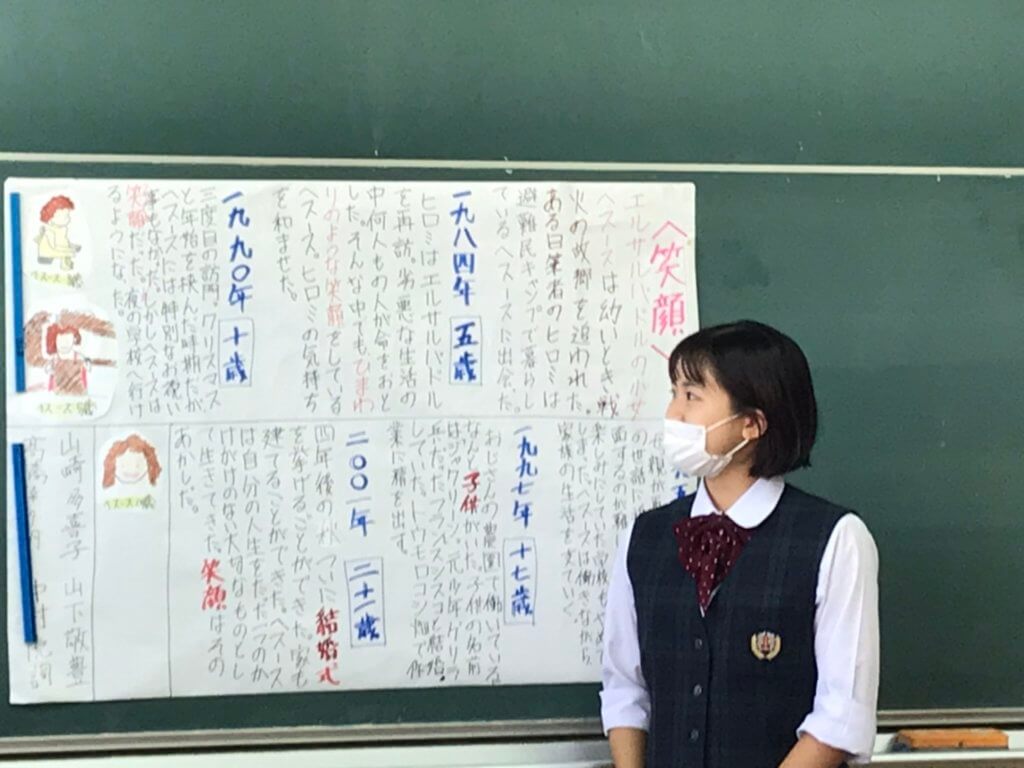 〈笑顔〉
エルサルバドルの少女
ヘスースは幼いとき、戦
火の故郷を追われた。
ある日筆者のヒロミは
避難民キャンプで暮らし
ているヘスースに出会た。
一九八四年 五歳
ヒロミはエルサルバドル
を再訪。劣悪な生活の
中何人もの人が命をおと
した。そんな中でもひまわ
りのような笑顔をしている
ヘスース。ヒロミの気持ち
を和ませた。
一九九〇年 十歳
三度目の訪問。クリスマス
と年始を挟んだ時期だが
ヘスースには特別なお祝い
事もなかた。しかしヘスースは
笑顔だった。夜の学校へ行け
るようになった。
ヘスース
ヘスース
の世話に
面するのが
楽しみにしていた学校もやめて
しまった。ヘスースは働きながら
家族の生活を支ていく。
一九九七年 十七歳
おじさんの農園で働いている
なんと子供がいた。子供の名前
はジャクリーン。元少年ゲリラ
兵だったフランシスコと結婚
していた。トウモロコシ畑で作
業に精を出す。
二〇〇一年 二十二歳
四年後の秋ついに結婚式
を挙げることができた。家も
建てることができた。ヘスース
は自分の人生をただ一つのか
けがけのない大切なものとし
て生きてきた。笑顔はその
あかした。
ヘスース
山崎多喜子 山下敬